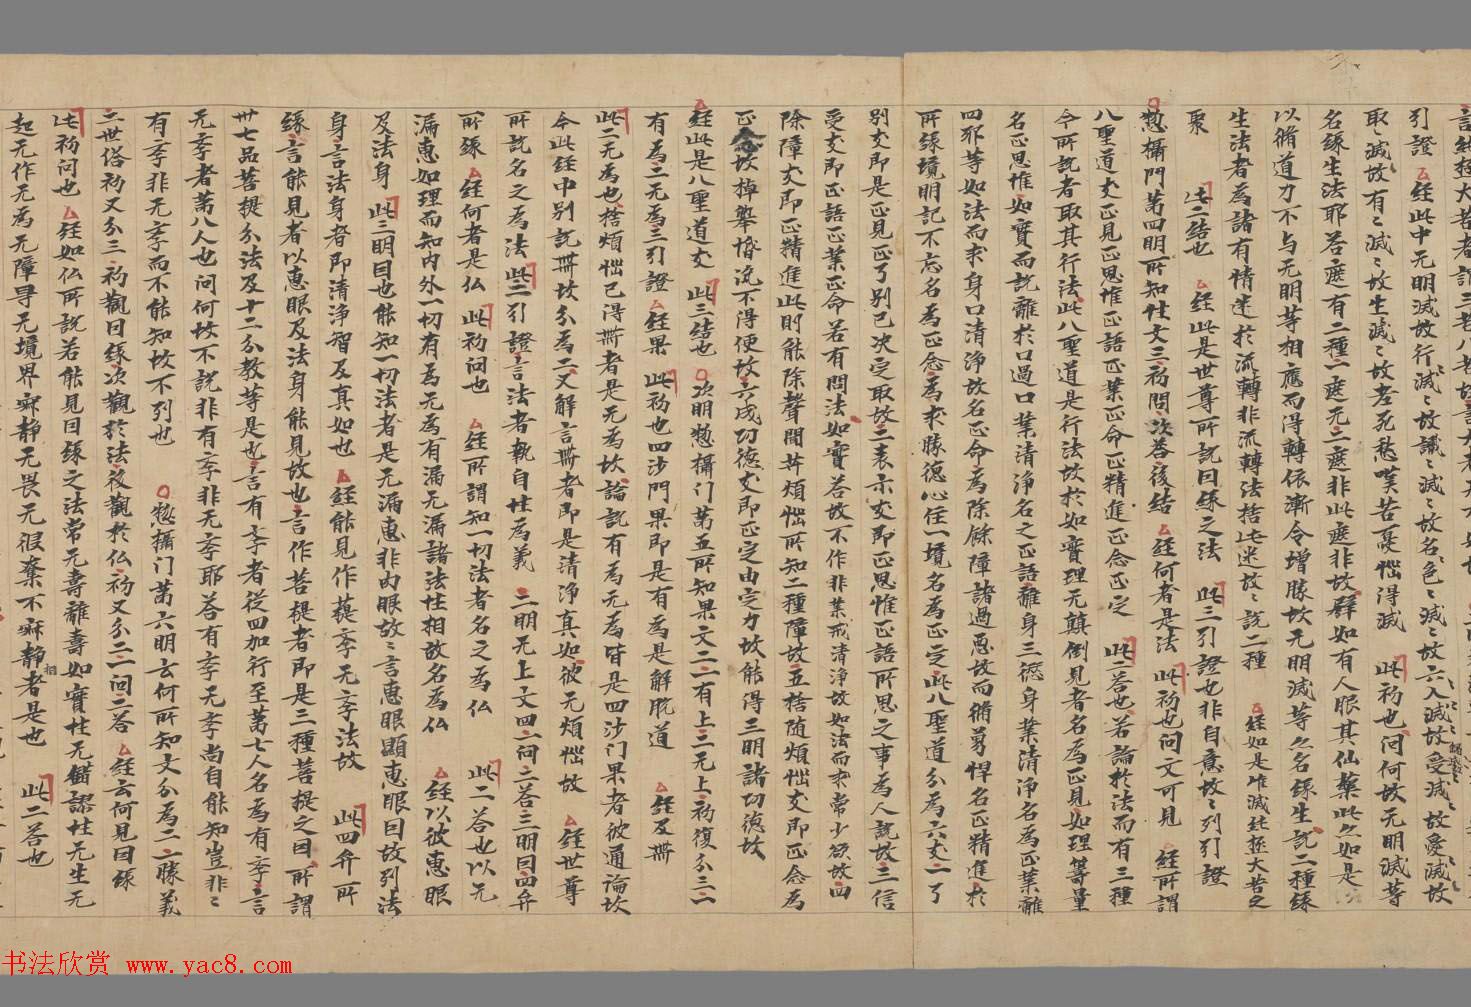 引證　経此中无明滅故行滅〻故識〻滅〻故名〻色〻滅〻故六入滅故受滅〻故愛滅故
取〻滅故有〻滅〻故生滅〻故老死愁嘆苦憂惱得滅　此初也問何故无明滅等
名緣生法耶答㢘有二種一㢘无二㢘非此㢘非故群如有人眼其仙藥此亦如是
以脩道力不与无明等相應而得轉依漸令增勝故无明滅等亦名緣生說二種緣
生法者為諸有情迷於流轉非流轉法捨此迷故〻說二種　経如是唯滅純極大苦之
聚　此二結也　経此是世尊所說因緣之法　此三引證也非自意故〻列引證
惣攝門苐四明所知性文三初問次答後結　経何者是法　此初也問文可見　経所謂
八聖道文正見正思惟正語正業正命正精進正念正定　此二答也若論於法而有三種
今所說者取其行法此八聖道是行法故於如實理无顛倒見者名為正見如理籌量
名正思惟如實而說離於口過口業清淨名之正語離身三𠍴身業清淨名為正業離
四邪等如法而求身口清淨故名正命為除餘障諸過惡故而脩勇悍名正精進於
所緣境明記不忘名為正念為求勝德心住一境名為正定此八聖道分為六文一了
別文即是正見正了別已決定取故二表示文即正思惟正語所思之事為人說故三信
受文即正語正業正命若有問法如實答故不作非業戒清淨故如法而求常少欲故四
除障文即正精進此則能除聲聞并煩惱所知二種障故五捨随煩惱文即正念為
正念故掉舉惛沉不得便故六成功德文即正定由定力故能得三明諸功德故
経此是八聖道文　此三結也　次明惣攝门苐五所知果文二一有上二无上初復分三一
有為二无為三引證　経果　此初也四沙門果即是有為是解脫道　経及𣵀
此二无為也捨煩惱已得𣵀者是无為故論說有為无為皆是四沙门果者彼通論故
今此経中别說𣵀故分為二又解言𣵀者即是清淨真如彼无煩惱故　経世尊
所說名之為法　此二引證言法者執自性為義　二明无上文四一問二答三明因四弁
所緣　経何者是仏　此初问也　経所謂知一切法者名之為仏　此二答也以无
漏惠如理而知内外一切有為无為有漏无漏諸法性相故名為仏　経以彼惠眼
及法身　此三明因也能知一切法者是无漏惠非肉眼故〻言惠眼顯惠眼因故列法
身言法身者即清淨智及真如也　経能見作菩提學无學法故　此四弁所
緣言能見者以惠眼及法身能見故也言作菩提者即是三種菩提之因所謂
卅七品菩提分法及十二分教等是也言有學者從四加行至苐七人名為有學言
无學者苐八人也問何故不說非有學非无學耶答有學无學尚自能知豈非〻
有學非无學而不能知故不列也　惣攝门苐六明云何所知文分為二一勝義
二世俗初又分三初觀因緣次觀於法後觀於仏初又分二一问二答　経云何見因緣
此初问也　経如仏所說若能見因緣之法常无壽離壽如實性无錯謬性无生无
起无作无為无障㝵无境界寂静无畏无侵棄不寂静相者是也　此二答也
书法欣赏 www.yac8.com